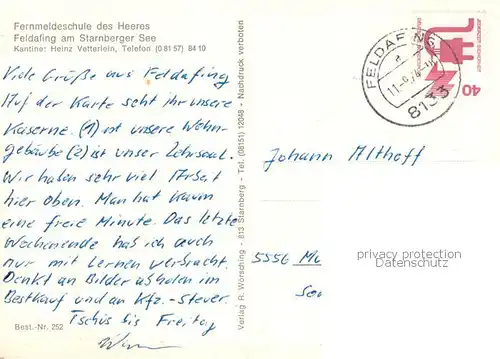 Fernmeldeschule des Heeres
Feldafing am Starnberger See
Kantine: Heinz Vetterlein, Telefon (0 81 57) 84 10
Viele Grüße aus Feldafing
Auf der Karte seht ihr unsere
Kaserne. (1) ist unsere Wohn-
gebäube (2) ist unser Lehrsaal.
Wir haben sehr viel Arbeit
hier oben. Man hat kaum
eine freie Minute. Das letzte
Wochenende hab ich auch
nur mit Lernen verbracht.
Denkt an Bilder abholen im
Bestkauf und an Kfz.-Steuer.
Tschüs bis Freitag
Best.-Nr. 252
Verlag R. Wörsching - 813 Starnberg - Tel. (08151) 12048 - Nachdruck verboten
FELDAFING
8133
40
Johann Althoff
5556 Mü
privacy protection
Datenschutz